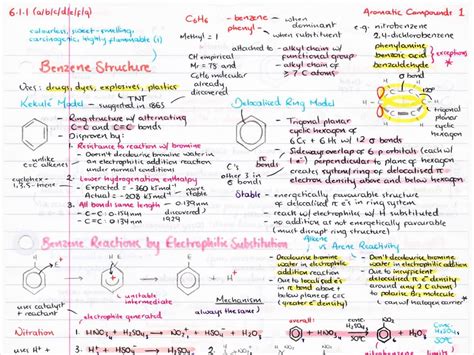 6.1.1 (a/b/c/d/e/f/g)
Aromatic Compounds 1
colourless, sweet-smelling,
carcinogenic, highly flammable (l)
C6H6 - benzene
phenyl-
when dominant
when substituent
Methyl = 1
e.g. nitrobenzene
2,4-dichlorobenzene
phenylamine
benzoic acid
benzaldehyde
exceptions
attached to alkyl chain w/ functional group
alkyl chain w/ ≥ 7 C atoms
CH empirical
Mr = 78 and
C6H6 molecular
already
Benzene Structure
Uses: drugs, dyes, explosives, plastics
TNT
Kekulé Model - suggested in 1865
- Ring structure w/ alternating
C-C and C=C bonds
- Disproven by:
1. Resistance to reaction w/ bromine
- Didn't decolourise bromine water in
an electrophilic addition reaction
under normal conditions
2. Lower hydrogenation enthalpy
- Expected = -360 kJmol⁻¹
- Actual = -208 kJmol⁻¹
3. All bonds same length - 0.139nm
- C-C: 0.154nm
- C=C: 0.134nm
discovered
1929
unlike
C=C alkenes
cyclohexa-
1,3,5-triene
Delocalised Ring Model
- Trigonal planar
cyclic hexagon of
6 Cs + 6 Hs w/ 12 σ bonds
- Sideway overlap of 6 p orbitals (each w/
1 e⁻) perpendicular to plane of hexagon
creates system/ring of delocalised π
electron density above and below hexagon
1 e⁻ in π bonds
other 3 in σ bonds
σ bond
trigonal
planar
cyclic
hexagon
Stable
- energetically favourable structure
of delocalised π e⁻s in ring system
- react w/ electrophiles w/ H substituted
- no addition as not energetically favourable
(must disrupt ring structure)
Benzene Reactions by Electrophilic Substitution
unstable
intermediate
uses catalyst
+ reactant
electrophile generated
Mechanism
always the same!
Alkene vs Arene Reactivity
- Decolourise bromine
water in electrophilic
addition reaction
- Due to localised
electrons in
π bond above +
below plane of C=C
(greater electron density)
- Don't decolourise bromine
water in electrophilic addition
- Due to insufficient
delocalised π electron density
around any 2 C atoms
to polarise Br2 molecule
Nitration
1. HNO3 + H2SO4 → NO2⁺ + HSO4⁻ + H2O
overall:
conc. H2SO4